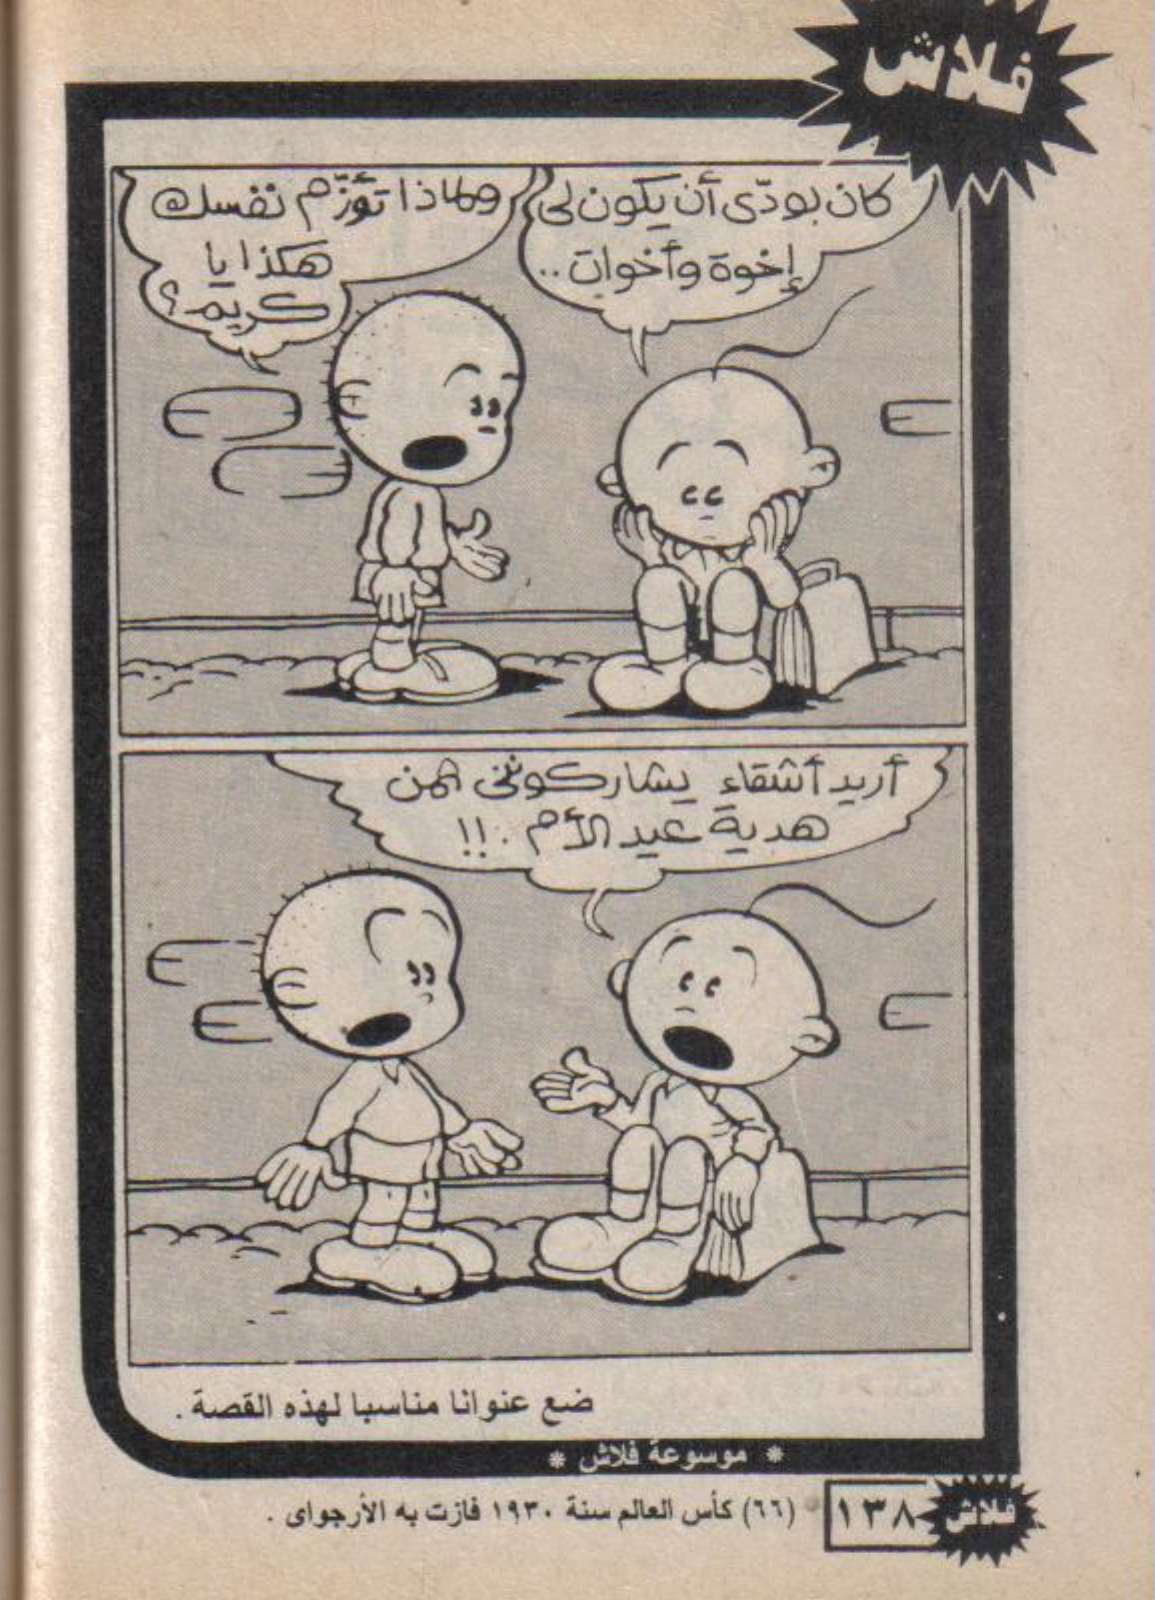 فلاش
كان بودّى أن يكون لى
إخوة وأخوات ..
ولماذا تؤزّم نفسك
هكذا يا
كريم ؟
أريد أشقاء يشاركوننى ثمن
هدية عيد الأم . !!
ضع عنوانا مناسبا لهذه القصة .
* موسوعة فلاش *
(٦٦) كأس العالم سنة ١٩٣٠ فازت به الأرجواى .
١٣٨
فلاش